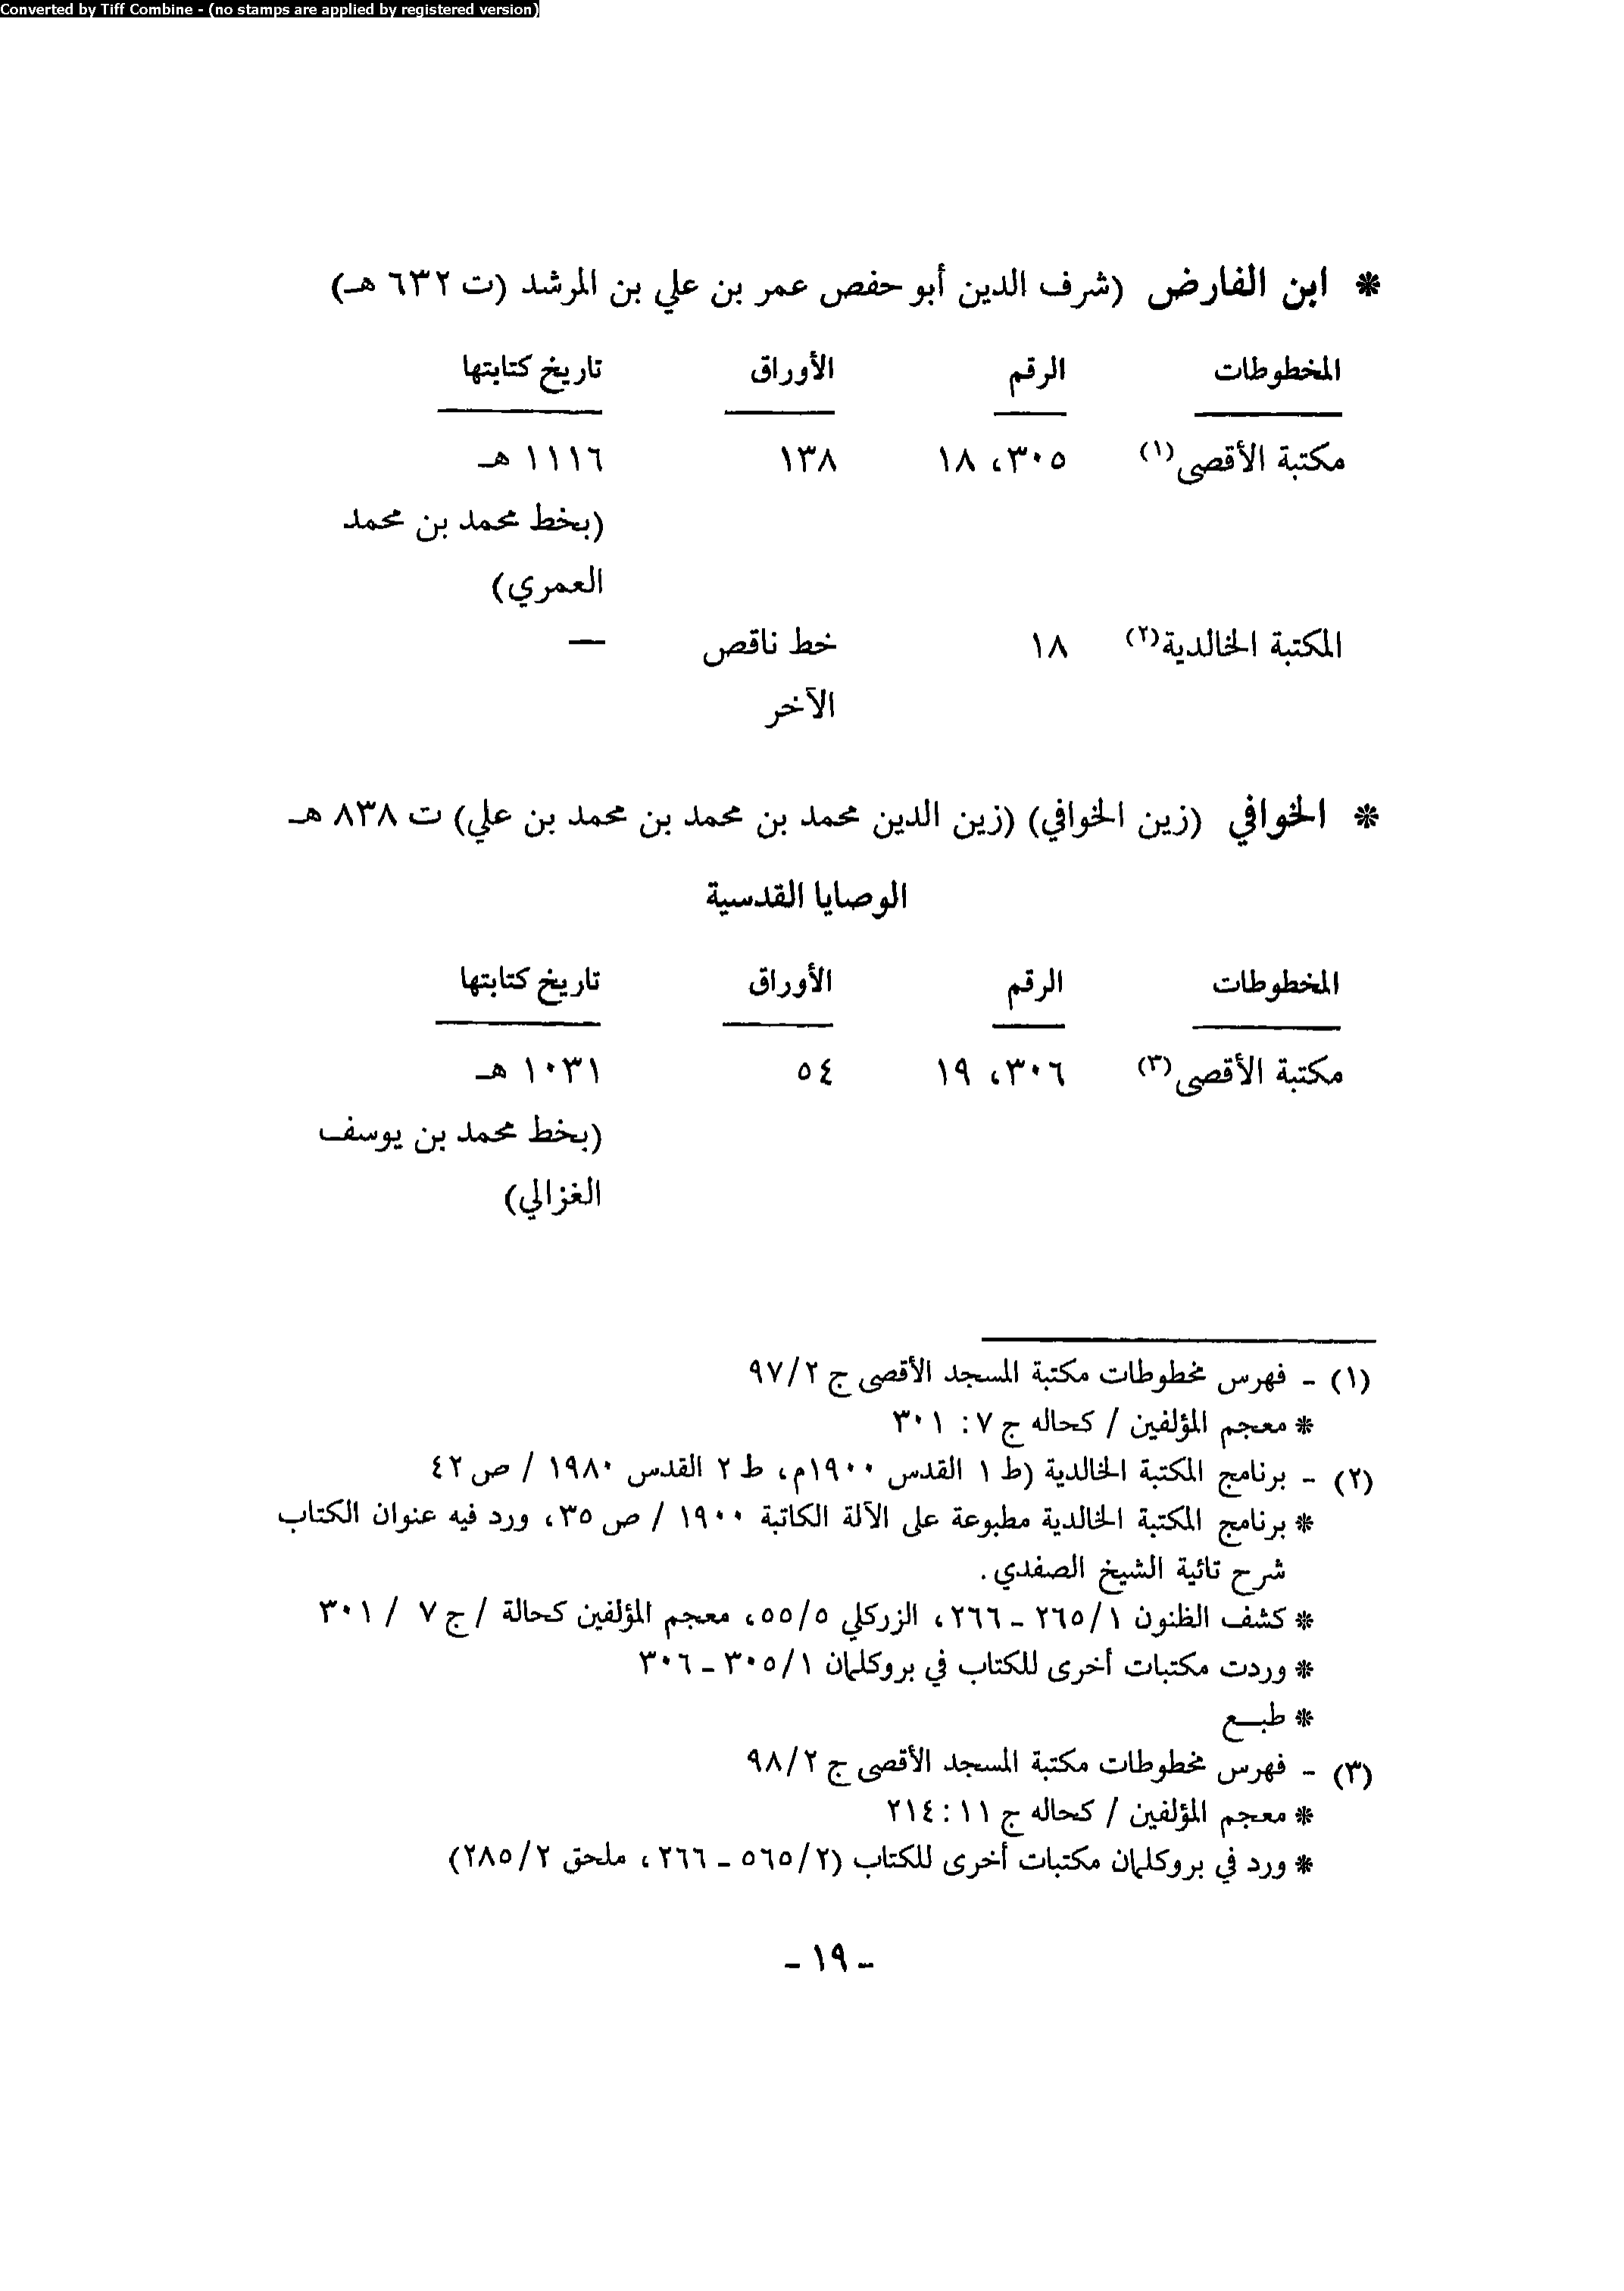 Converted by Tiff Combine - (no stamps are applied by registered version)
* ابن الفارض (شرف الدين أبو حفص عمر بن علي بن المرشد (ت ٦٣٢ هـ)
المخطوطات الرقم الأوراق تاريخ كتابتها
مكتبة الأقصى(١) ٣٠٥، ١٨ ١٣٨ ١١١٦ هـ
(بخط محمد بن محمد
العمري)
المكتبة الخالدية(٢) ١٨ خط ناقص —
الآخر
* الخوافي (زين الخوافي) (زين الدين محمد بن محمد بن محمد بن علي) ت ٨٣٨ هـ
الوصايا القدسية
المخطوطات الرقم الأوراق تاريخ كتابتها
مكتبة الأقصى(٣) ٣٠٦، ١٩ ٥٤ ١٠٣١ هـ
(بخط محمد بن يوسف
الغزالي)
(١) - فهرس مخطوطات مكتبة المسجد الأقصى ج ٩٧/٢
* معجم المؤلفين / كحاله ج ٧: ٣٠١
(٢) - برنامج المكتبة الخالدية (ط ١ القدس ١٩٠٠م، ط ٢ القدس ١٩٨٠ / ص ٤٢
* برنامج المكتبة الخالدية مطبوعة على الآلة الكاتبة ١٩٠٠ / ص ٣٥، ورد فيه عنوان الكتاب
شرح تائية الشيخ الصفدي.
* كشف الظنون ٢٦٥/١ - ٢٦٦، الزركلي ٥٥/٥، معجم المؤلفين كحالة / ج ٧ / ٣٠١
* وردت مكتبات أخرى للكتاب في بروكلمان ٣٠٥/١ - ٣٠٦
* طبـــع
(٣) - فهرس مخطوطات مكتبة المسجد الأقصى ج ٩٨/٢
* معجم المؤلفين / كحاله ج ١١: ٢١٤
* ورد في بروكلمان مكتبات أخرى للكتاب (٥٦٥/٢ - ٢٦٦، ملحق ٢٨٥/٢)
- ١٩ -